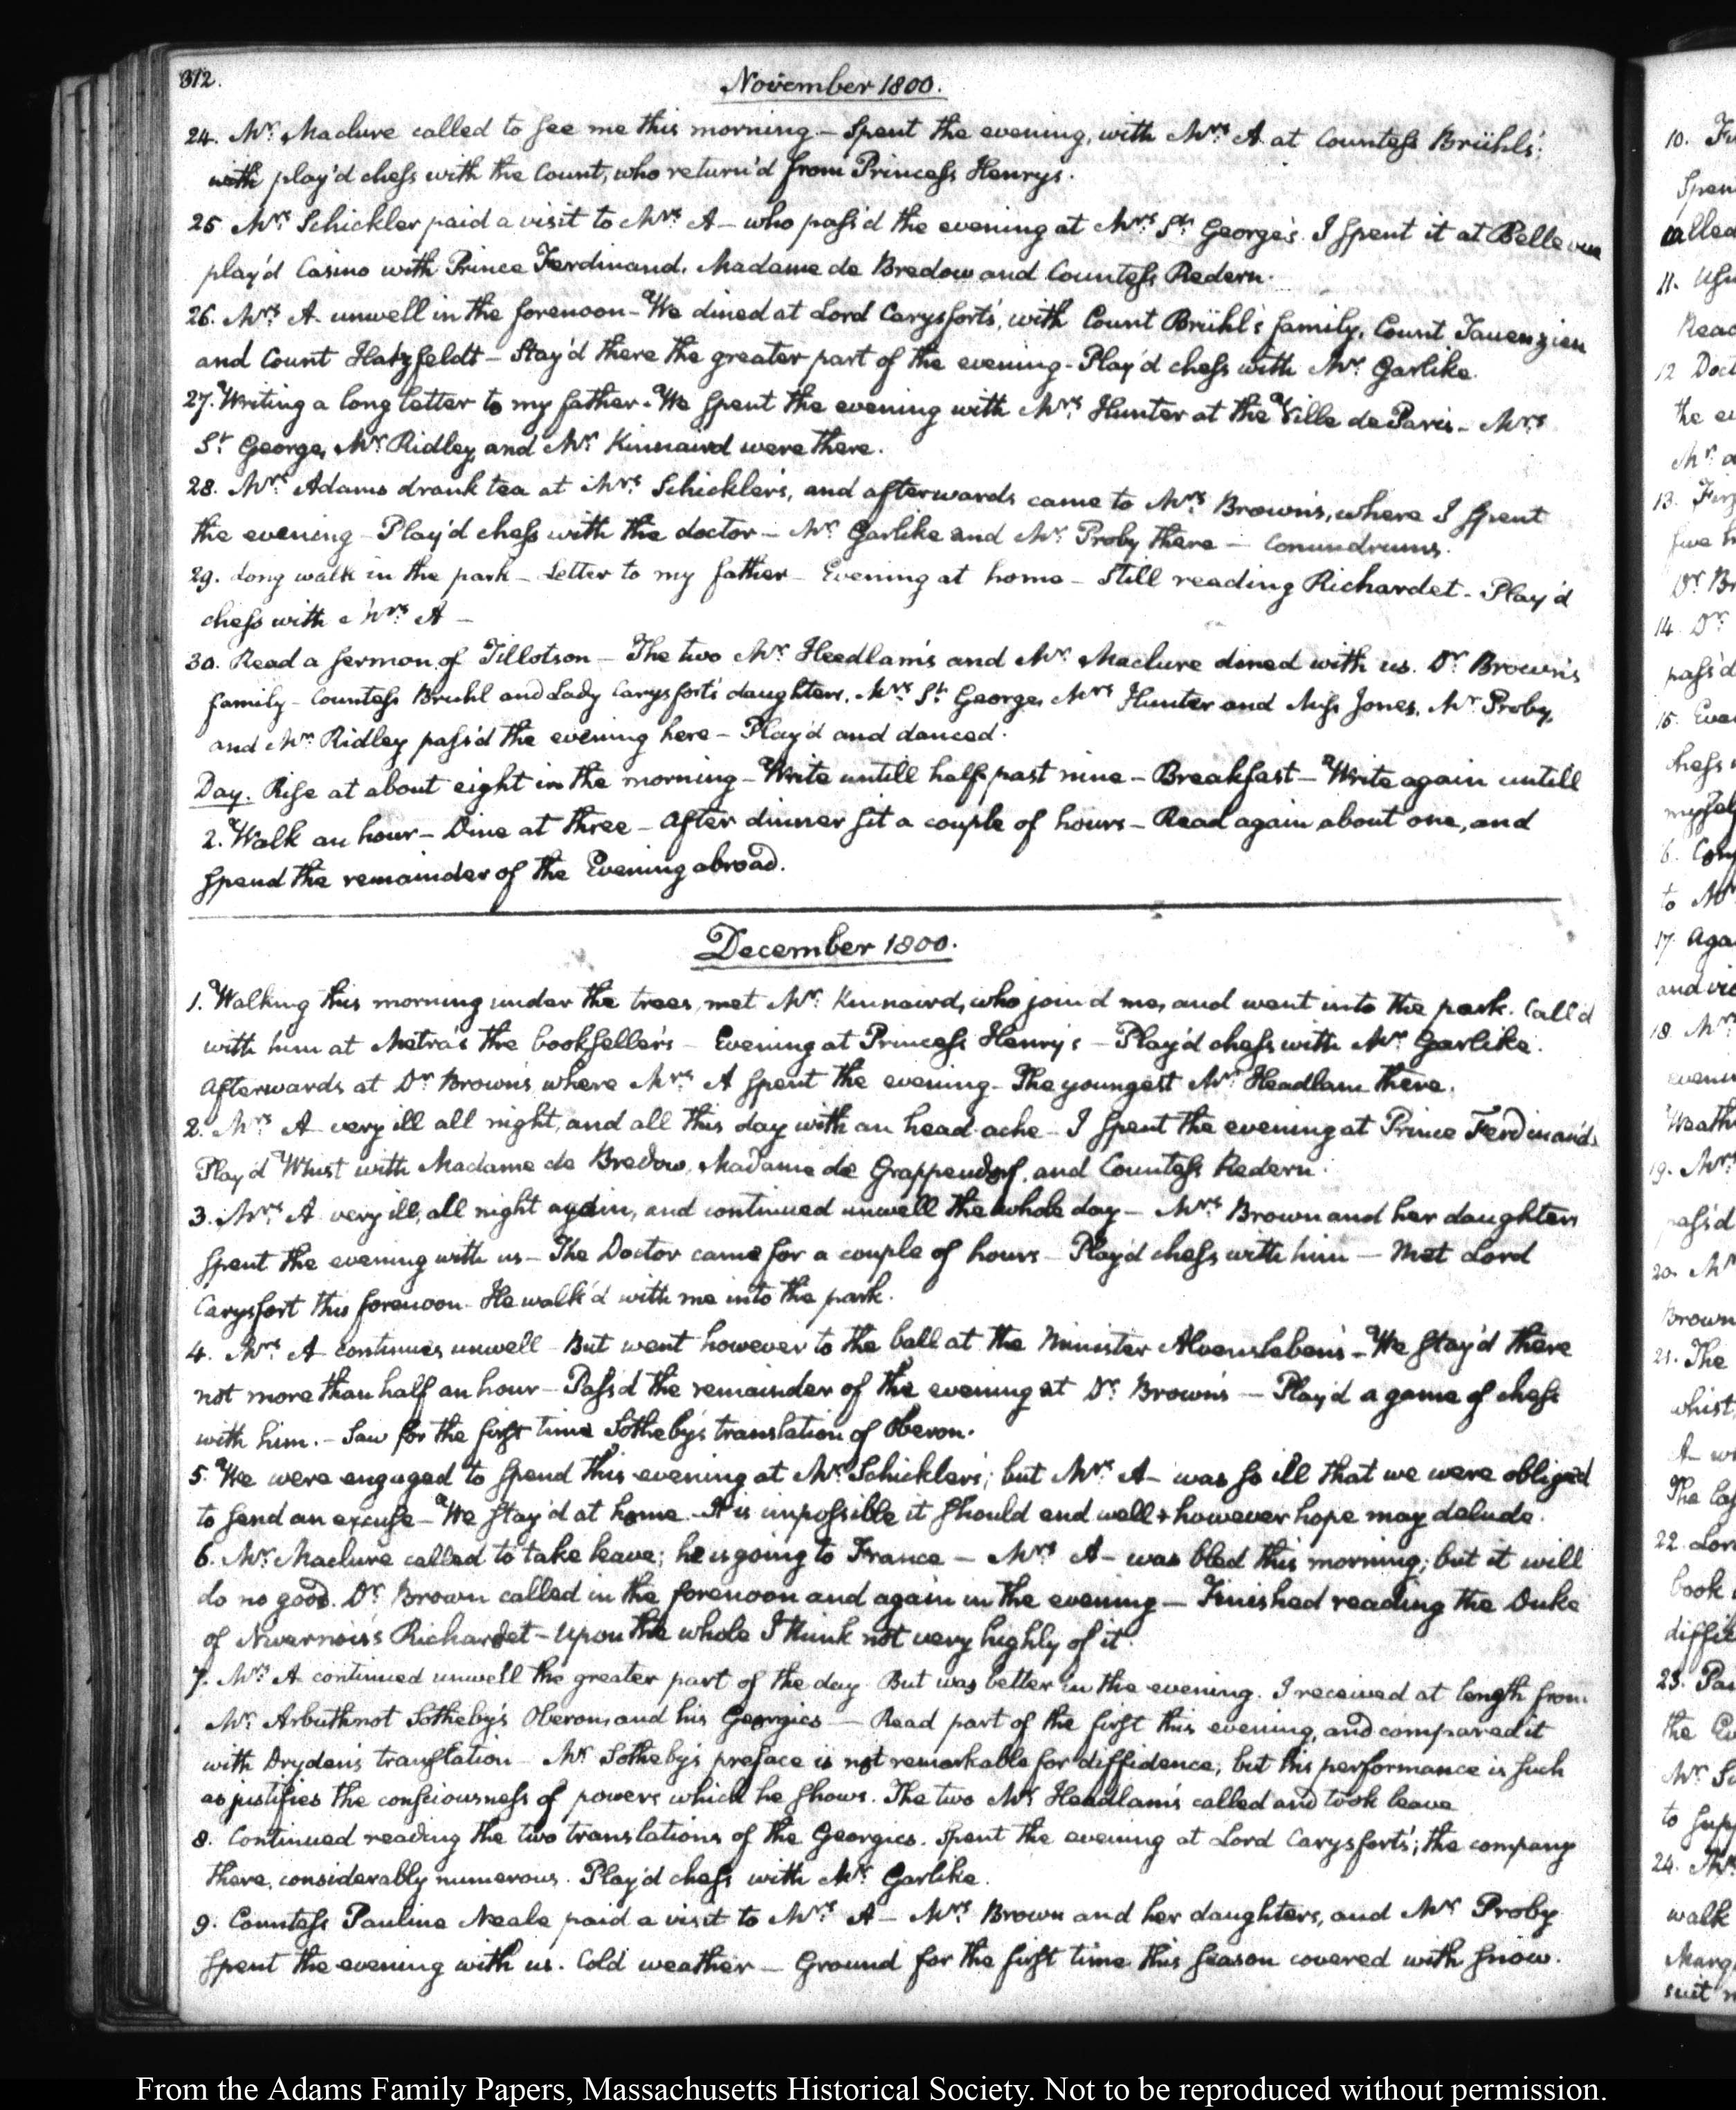 312.
November 1800.
24. Mr. Maclure called to see me this morning – Spent the evening, with Mrs. A. at Countess Brühl's;
with play'd chess with the Count, who return'd from Princess Henry's.
25. Mrs. Schickler paid a visit to Mrs. A – who pass'd the evening at Mrs. St. George's. I spent it at Bellevue
play'd Casino with Prince Ferdinand, Madame de Bredow and Countess Redern.
26. Mrs. A unwell in the forenoon – We dined at Lord Carysfort's, with Count Brühl's family, Count Tauenzien
and Count Hatzfeldt – Stay'd there the greater part of the evening – Play'd chess with Mr. Garlike.
27. Writing a long letter to my father – We spent the evening with Mrs. Hunter at the Ville de Paris – Mrs.
St. George, Mr. Ridley, and Mr. Kinnaird were there.
28. Mrs. Adams drank tea at Mrs. Schickler's, and afterwards came to Mrs. Brown's, where I spent
the evening – Play'd chess with the doctor – Mr. Garlike and Mr. Proby there – Conundrums.
29. Long walk in the park – Letter to my father – Evening at home – Still reading Richardet – Play'd
chess with Mrs. A –
30. Read a sermon of Tillotson – The two Mr. Headlam's and Mr. Maclure dined with us. Dr. Brown's
family – Countess Bruhl and Lady Carysfort's daughters, Mrs. St. George, Mrs. Hunter and Miss Jones, Mr. Proby,
and Mr. Ridley pass'd the evening here – Play'd and danced.
Day. Rise at about eight in the morning – Write untill half past nine – Breakfast – Write again untill
2. Walk an hour – Dine at three – After dinner sit a couple of hours – Read again about one, and
spend the remainder of the Evening abroad.
December 1800.
1. Walking this morning under the trees, met Mr. Kinnaird, who join'd me, and went into the park. Call'd
with him at Metra's the bookseller's – Evening at Princess Henry's – Play'd chess with Mr. Garlike.
Afterwards at Dr. Brown's, where Mrs. A spent the evening – The youngest Mr. Headlam there.
2. Mrs. A very ill all night, and all this day with an head-ache – I spent the evening at Prince Ferdinand's
Play'd Whist with Madame de Bredow, Madame de Grappendorf, and Countess Redern.
3. Mrs. A very ill, all night again, and continued unwell the whole day – Mrs. Brown and her daughters
spent the evening with us – The Doctor came for a couple of hours – Play'd chess with him – Met Lord
Carysfort this forenoon – He walk'd with me into the park.
4. Mrs. A continues unwell – But went however to the ball at the Minister Alvensleben's – We stay'd there
not more than half an hour – Pass'd the remainder of the evening at Dr. Brown's – Play'd a game of chess
with him. – Saw for the first time Sotheby's translation of Oberon.
5. We were engaged to spend this evening at Mr. Schickler's; but Mrs. A – was so ill that we were obliged
to send an excuse – We stay'd at home – It is impossible it should end well + however hope may delude.
6. Mr. Maclure called to take leave; he is going to France – Mrs. A – was bled this morning; but it will
do no good. Dr. Brown called in the forenoon and again in the evening – Finished reading the Duke
of Nivernois's Richardet – Upon the whole I think not very highly of it.
7. Mrs. A continued unwell the greater part of the day. But was better in the evening. I received at length from
Mr. Arbuthnot Sotheby's Oberon, and his Georgics – Read part of the first this evening, and compared it
with Dryden's translation – Mr. Sotheby's preface is not remarkable for diffidence; but his performance is such
as justifies the consciousness of powers which he shows. The two Mr. Headlam's called and took leave
8. Continued reading the two translations of the Georgics. Spent the evening at Lord Carysfort's; the company
there, considerably numerous. Play'd chess with Mr. Garlike.
9. Countess Pauline Neale paid a visit to Mrs. A – Mrs. Brown and her daughters, and Mr. Proby
spent the evening with us. Cold weather – Ground for the first time this season covered with snow.
From the Adams Family Papers, Massachusetts Historical Society. Not to be reproduced without permission.